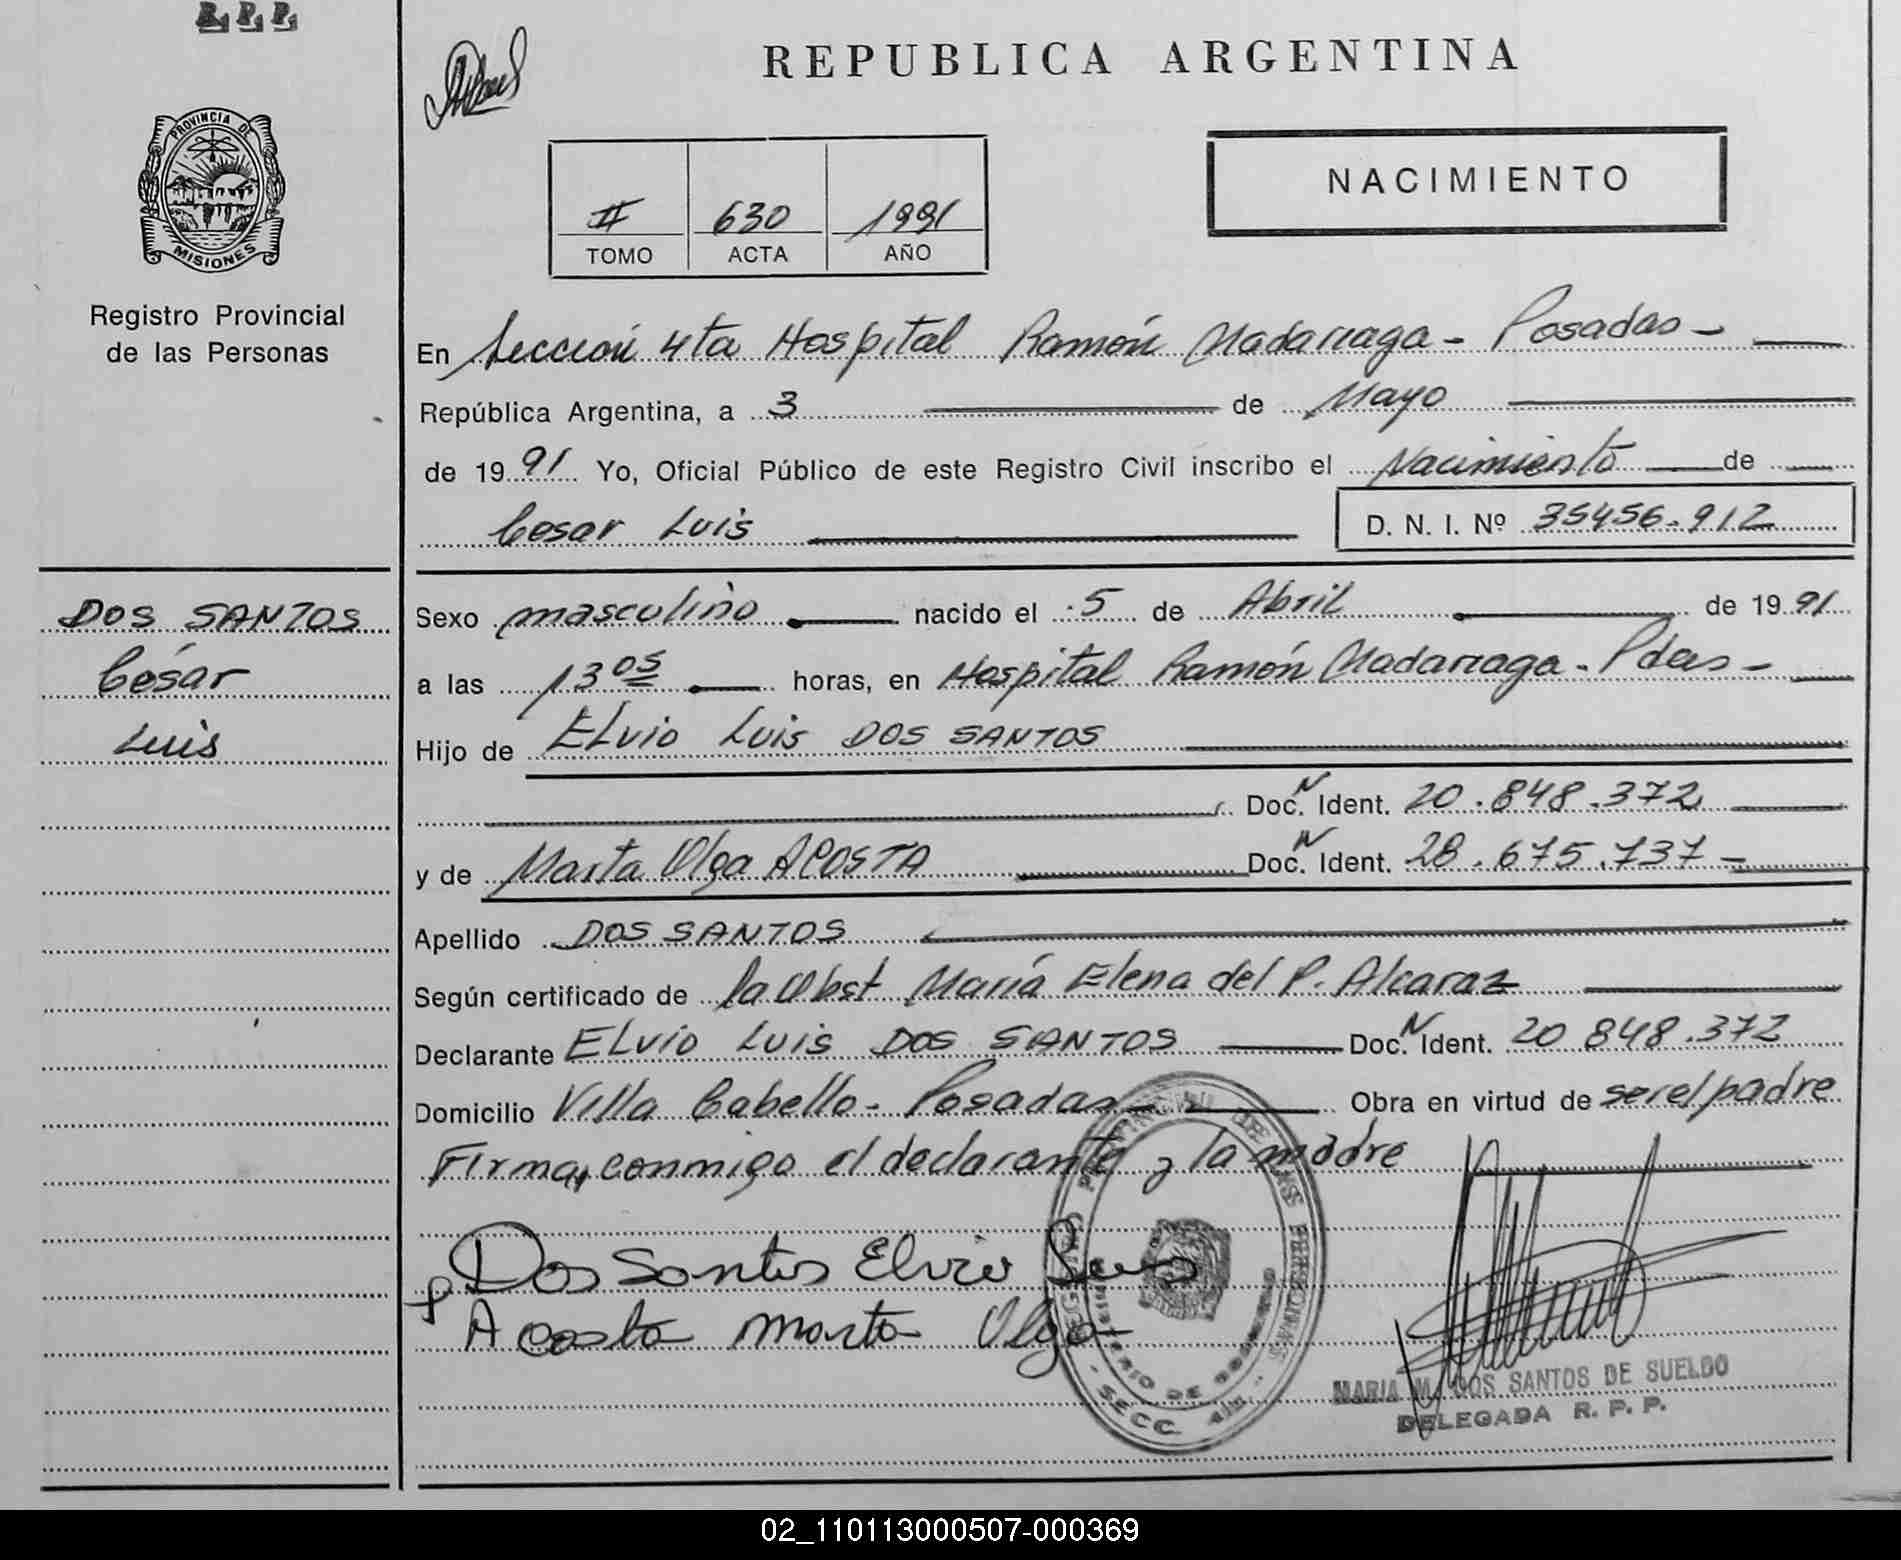 R. P. P.
REPUBLICA ARGENTINA
PROVINCIA DE
MISIONES
Registro Provincial
de las Personas
NACIMIENTO
II 630 1991
TOMO ACTA AÑO
En Sección 4ta Hospital Ramón Madariaga - Posadas -
República Argentina, a 3 de Mayo
de 1991 Yo, Oficial Público de este Registro Civil inscribo el Nacimiento de
Cesar Luis D. N. I. Nº 35456.912
DOS SANTOS
César
Luis
Sexo masculino nacido el 5 de Abril de 1991
a las 13 05 horas, en Hospital Ramón Madariaga - Pdas -
Hijo de Elvio Luis DOS SANTOS
Doc. N Ident. 20.848.372
y de Marta Olga ACOSTA Doc. N Ident. 28.675.737 -
Apellido DOS SANTOS
Según certificado de la Obst María Elena del P. Alcaraz
Declarante ELvio Luis DOS SANTOS Doc. N Ident. 20 848.372
Domicilio Villa Cabello - Posadas - Obra en virtud de ser el padre
Firma, conmigo el declarante y la madre
Dos Santos Elvio Luis
Acosta Marta Olga
MARIA M. DOS SANTOS DE SUELDO
DELEGADA R. P. P.
02_110113000507-000369